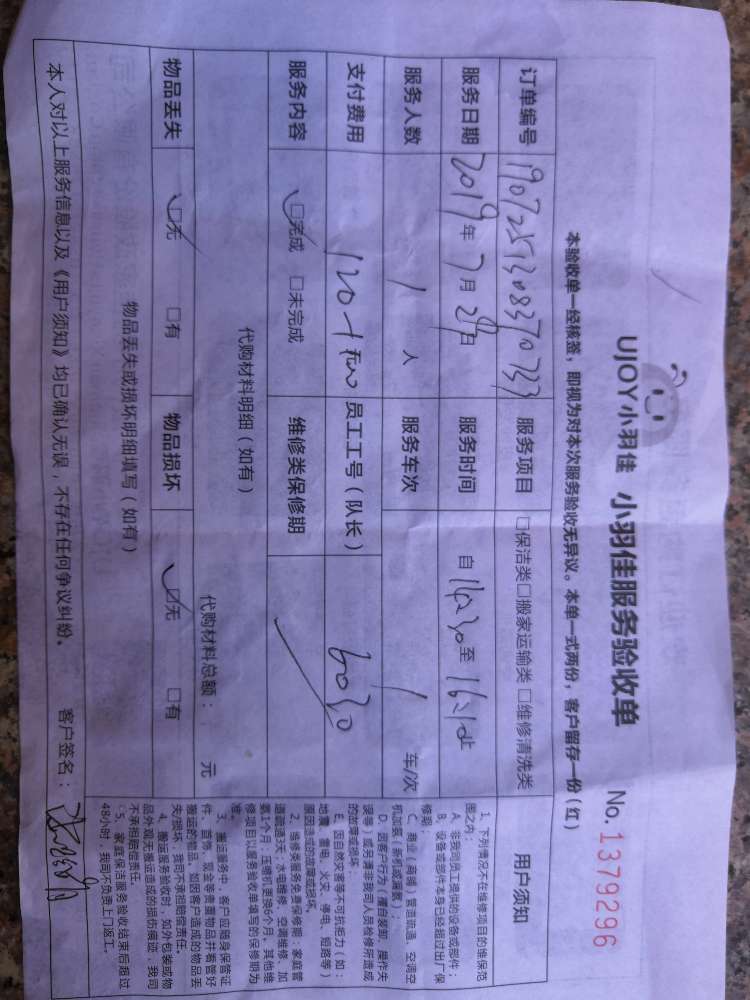 UJOY小羽佳 小羽佳服务验收单 No.1379296
本验收单一经核签，即视为对本次服务验收无异议。本单一式两份，客户留存一份(红)
订单编号 服务项目 □保洁类□搬家运输类□维修清洗类
服务日期 2019年7月28日 服务时间 自14:30至
服务人数 1 人 服务车次 1 车/次
支付费用 员工工号（队长） 6030
服务内容 □完成 □未完成 维修类保修期
代购材料明细（如有）
代购材料总额： 元
物品丢失 □无 □有 物品损坏 □无 □有
物品丢失或损坏明细填写（如有）
本人对以上服务信息以及《用户须知》均已确认无误，不存在任何争议纠纷。 客户签名：
用户须知
1、下列情况不在维修项目的维保范
围之内：
A、非我司员工提供的设备或部件；
B、设备或部件本身已经超过出厂保
修期；
C、商业（商铺）管道疏通、空调空
机加氨（新机或漏氨）；
D、因客户行为（擅自装卸、操作失
误等）或另请非我司人员检修所造成
的故障或损坏；
E、因自然灾害等不可抗拒力（如：
地震、雷电、火灾、停电、短路等）
原因造成的故障或损坏。
2、维修类服务免费保修期：家庭管
道疏通3天，水电维修、空调维修、加
氨1个月，压缩机更换6个月，其他维
修项目以服务验收单填写的保修期为
准。
3、搬运服务中，客户应随身保管证
件、首饰、现金等贵重物品并看管好
搬运的物品，如因客户造成的物品丢
失/损坏，我司不承担赔偿责任。
4、搬运服务验收时，如外包装或物
品外观无搬运造成的损伤痕迹，我司
不承担赔偿责任。
5、家庭保洁服务验收结束后超过
48小时，我司不负责上门返工。